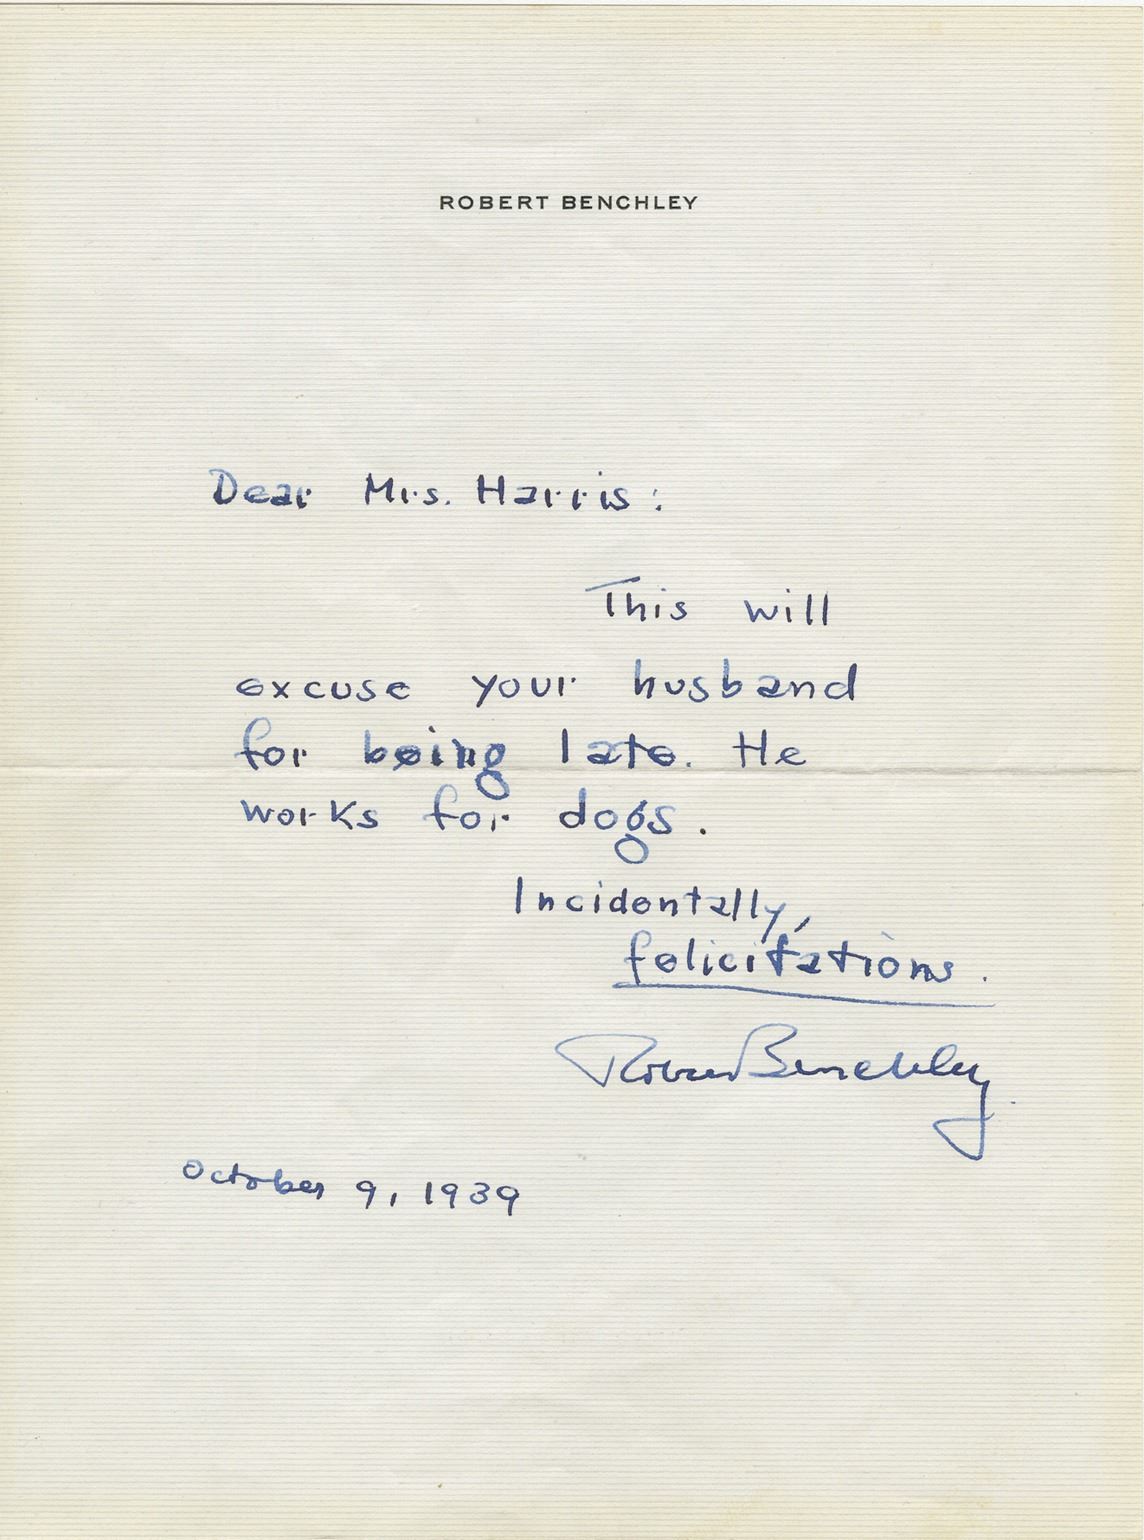 ROBERT BENCHLEY
Dear Mrs. Harris:
This will
excuse your husband
for being late. He
works for dogs.
Incidentally,
felicitations.
Robert Benchley
October 9, 1939